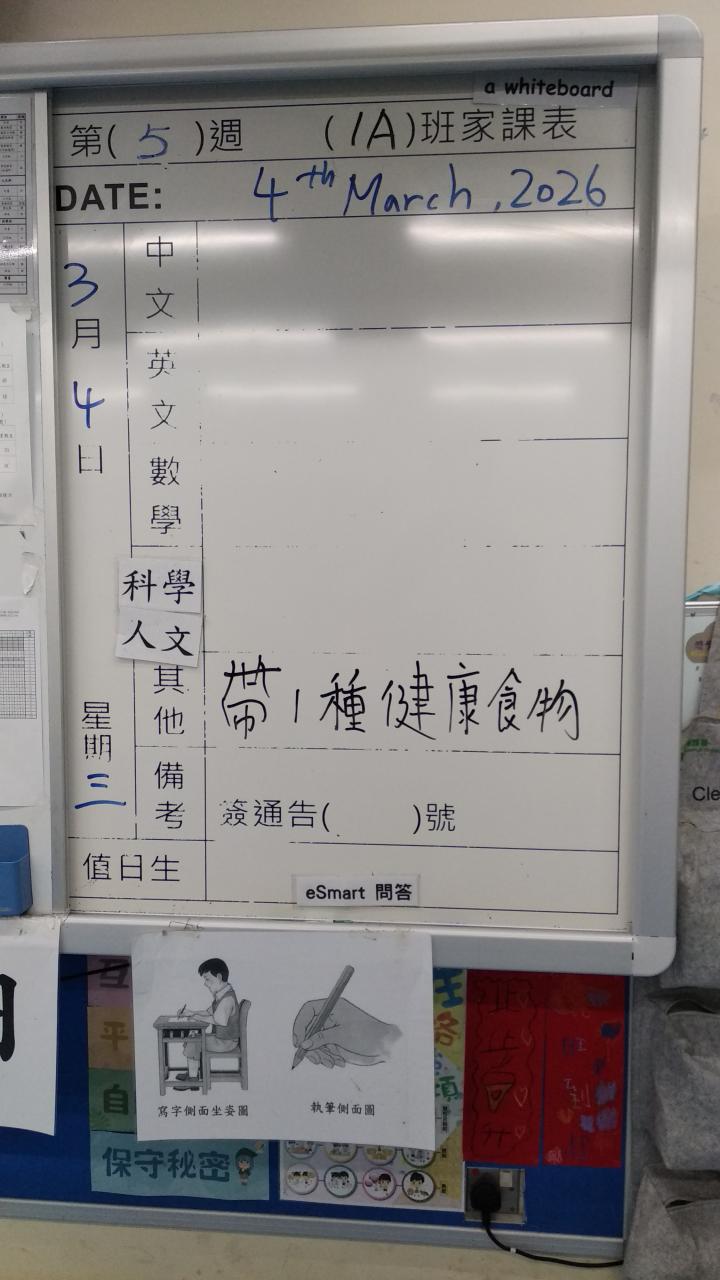 a whiteboard
第( 5 )週 (1A)班家課表
DATE: 4th March, 2026
3月4日
星期三
中文
英文
數學
科學
人文
其他 帶1種健康食物
備考 簽通告( )號
值日生
eSmart 問答
寫字側面坐姿圖 執筆側面圖
保守秘密
Cle